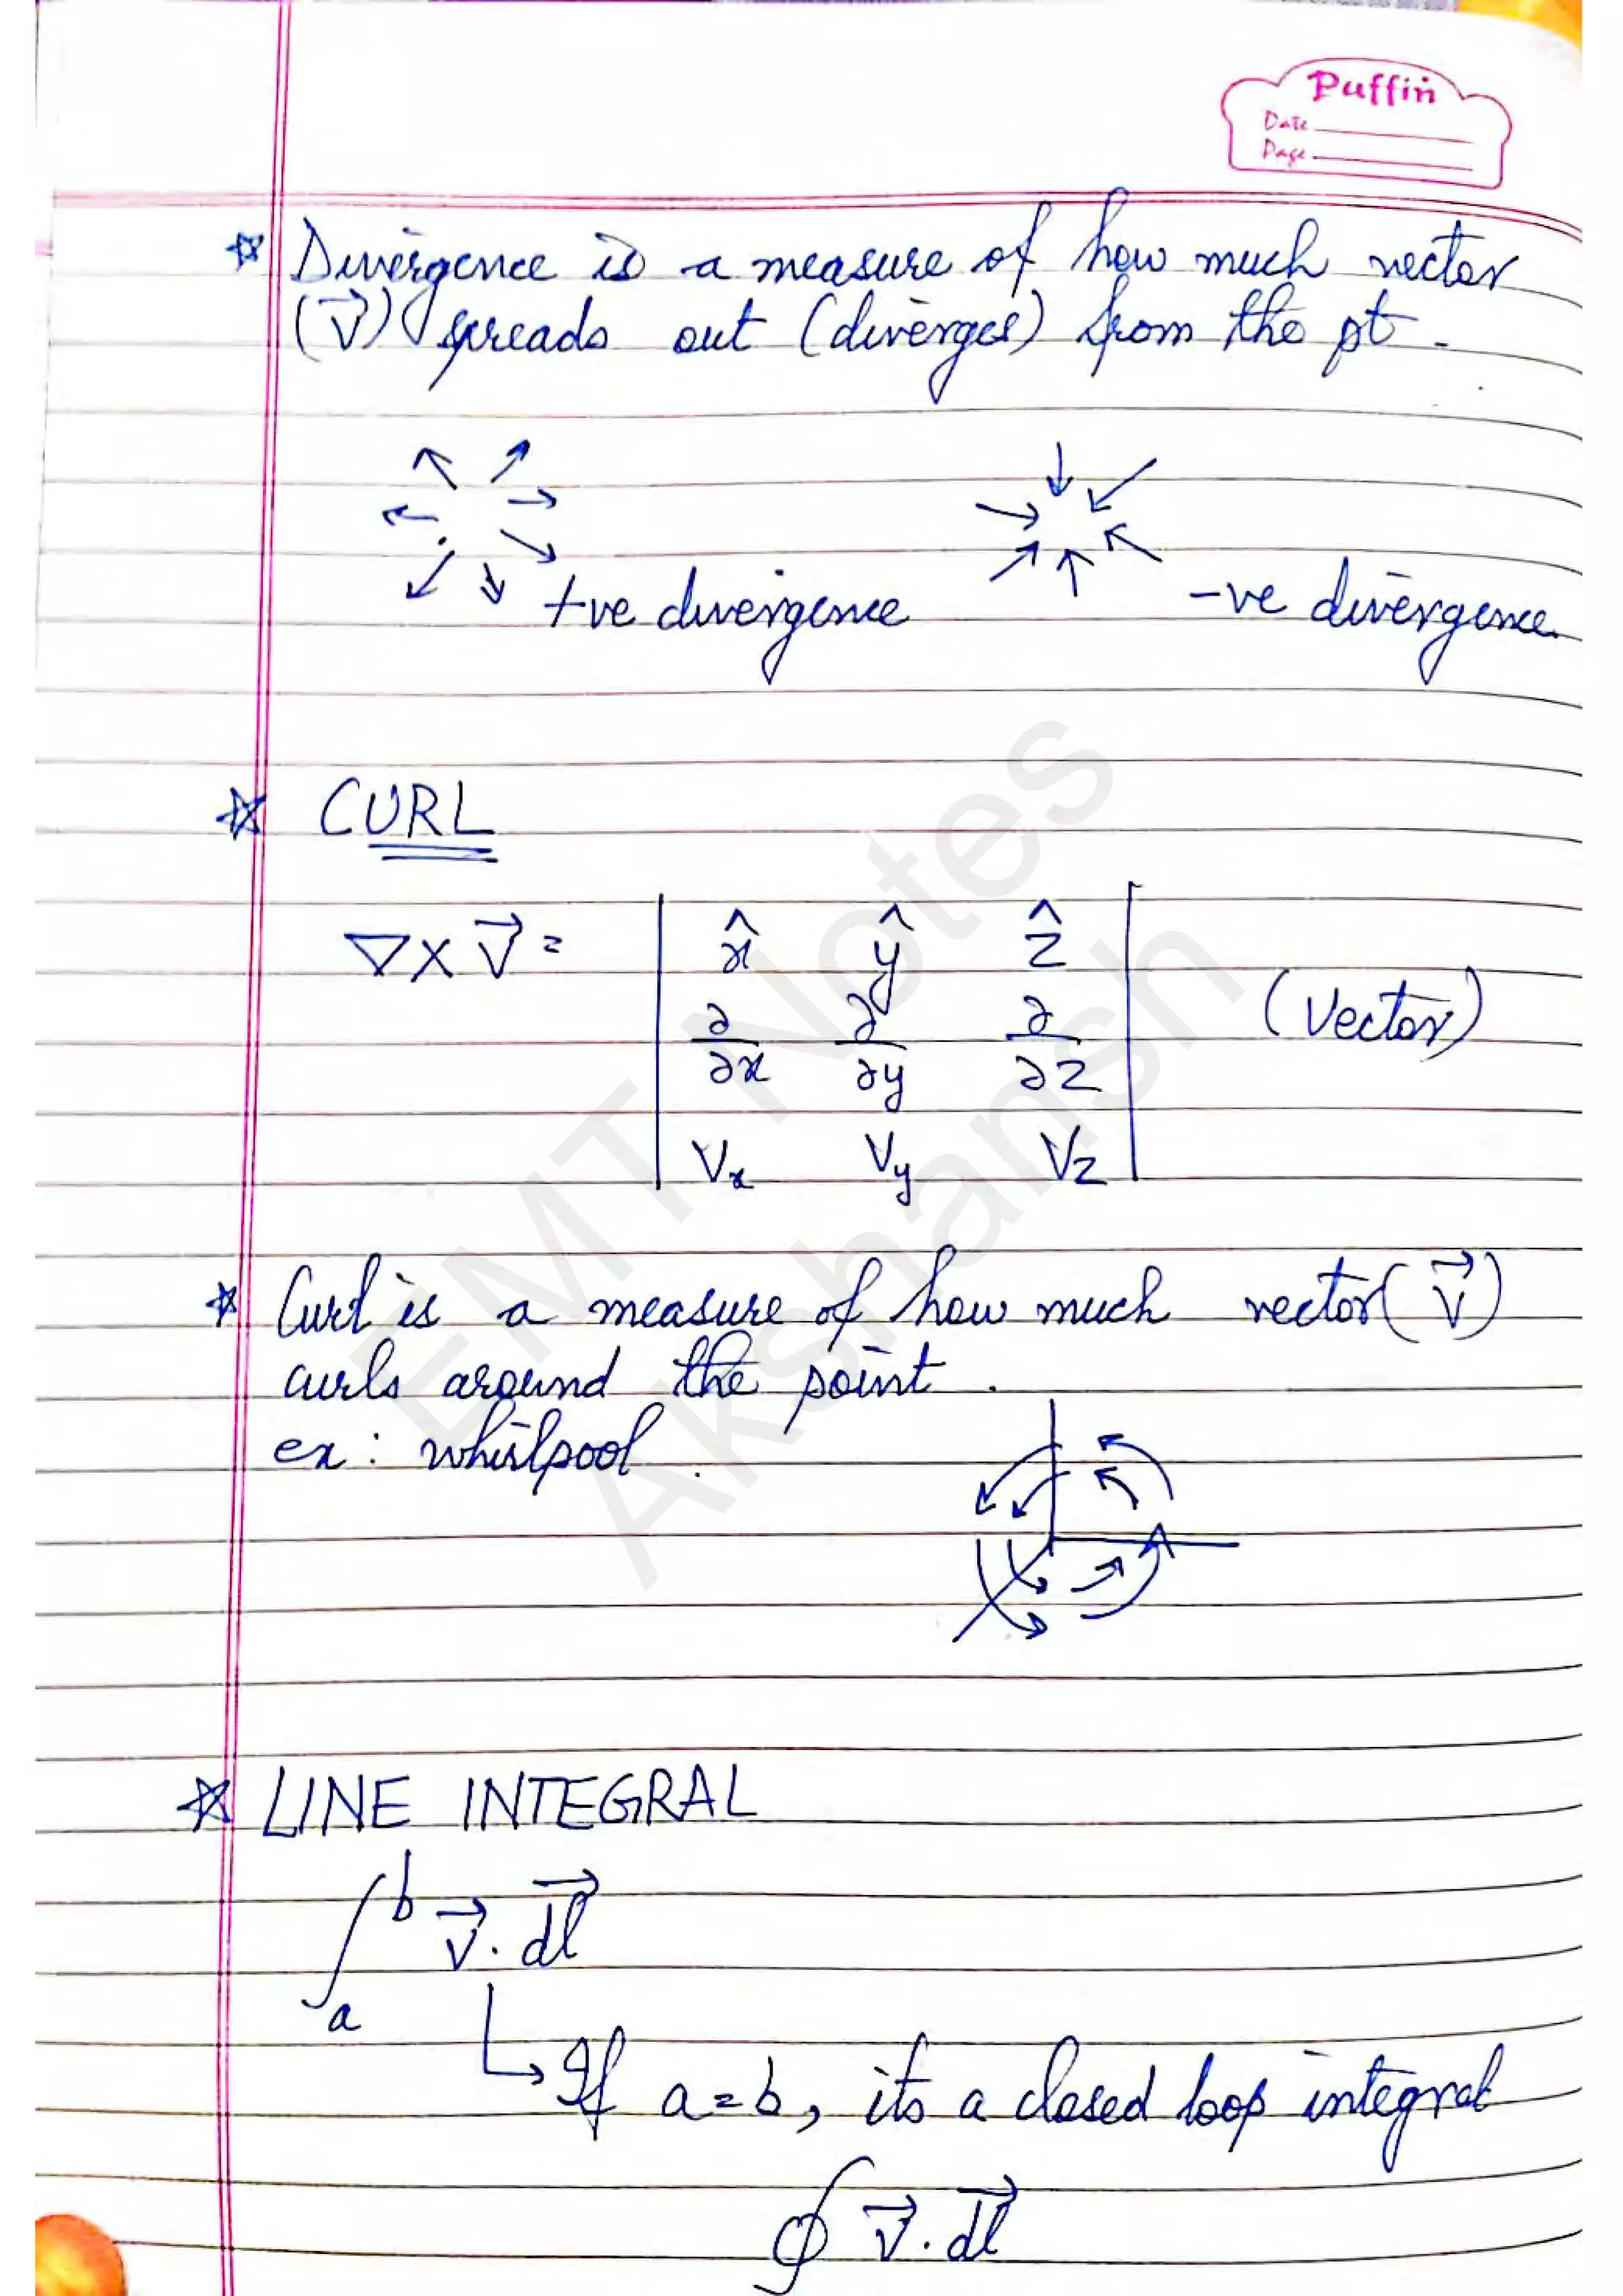 Puffin
Date
Page
☆ Divergence is a measure of how much vector
(V⃗) spreads out (diverges) from the pt.
+ve divergence
-ve divergence
☆ CURL
∇ × V⃗ = | x̂ ŷ ẑ |
| ∂/∂x ∂/∂y ∂/∂z | (Vector)
| Vx Vy Vz |
☆ Curl is a measure of how much vector (V⃗)
curls around the point.
ex: whirlpool.
☆ LINE INTEGRAL
∫ₐᵇ V⃗ . dl⃗
↳ If a=b, its a closed loop integral
∮ V⃗ . dl⃗
EMT Notes
Akshansh